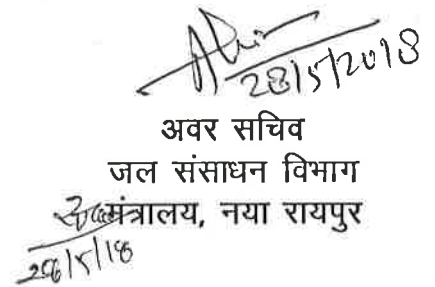 28/5/2018
अवर सचिव
जल संसाधन विभाग
मंत्रालय, नया रायपुर
28/5/18